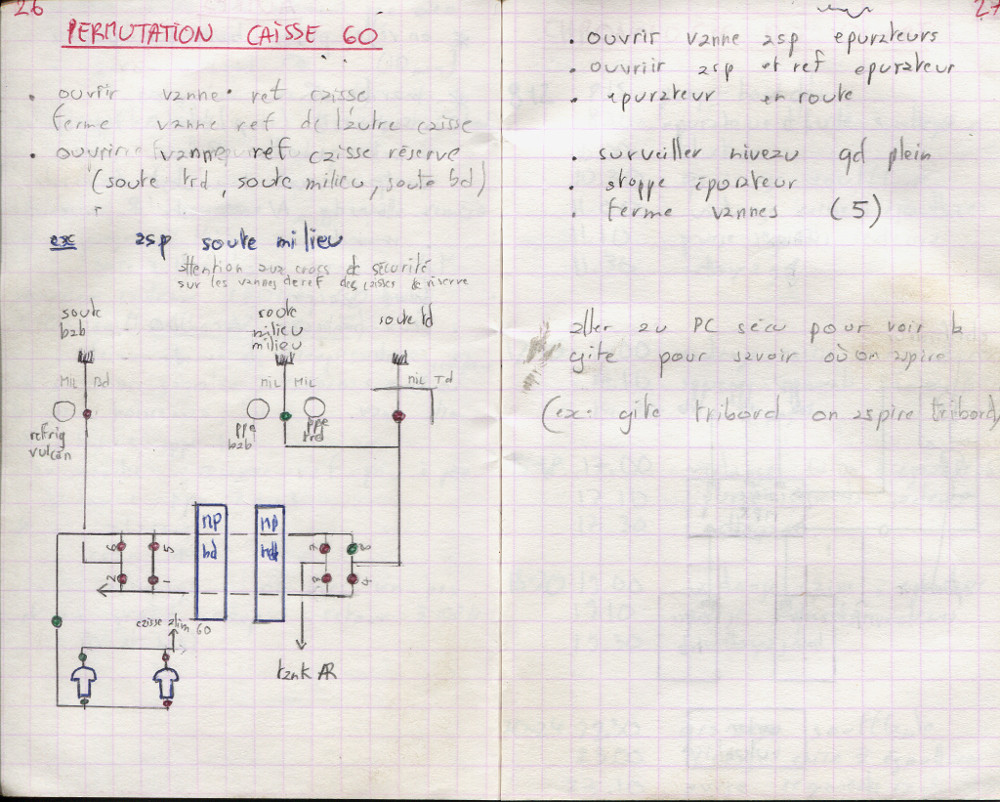 26
PERMUTATION CAISSE 60
. ouvrir vanne ref caisse
ferme vanne ref de l'autre caisse
. ouvrir vanne ref caisse réserve
(soute trd, soute milieu, soute bd)
ex asp soute milieu
attention aux crocs de sécurité
sur les vannes de ref des caisses de réserve
soute bab
soute milieu milieu
soute td
MIL Bd
MIL MIL
MIL Td
refrig vulcan
ppe bab
ppe trd
np bd
np trd
6 5
2 1
7 8
3 4
caisse alim 60
tank AR
27
. ouvrir vanne asp epurateurs
. ouvriir asp et ref epurateur
. epurateur en route
. surveiller niveau qd plein
. stoppe épurateur
. ferme vannes (5)
aller au PC sécu pour voir la
gite pour savoir où on aspire
(ex: gite tribord on aspire tribord)